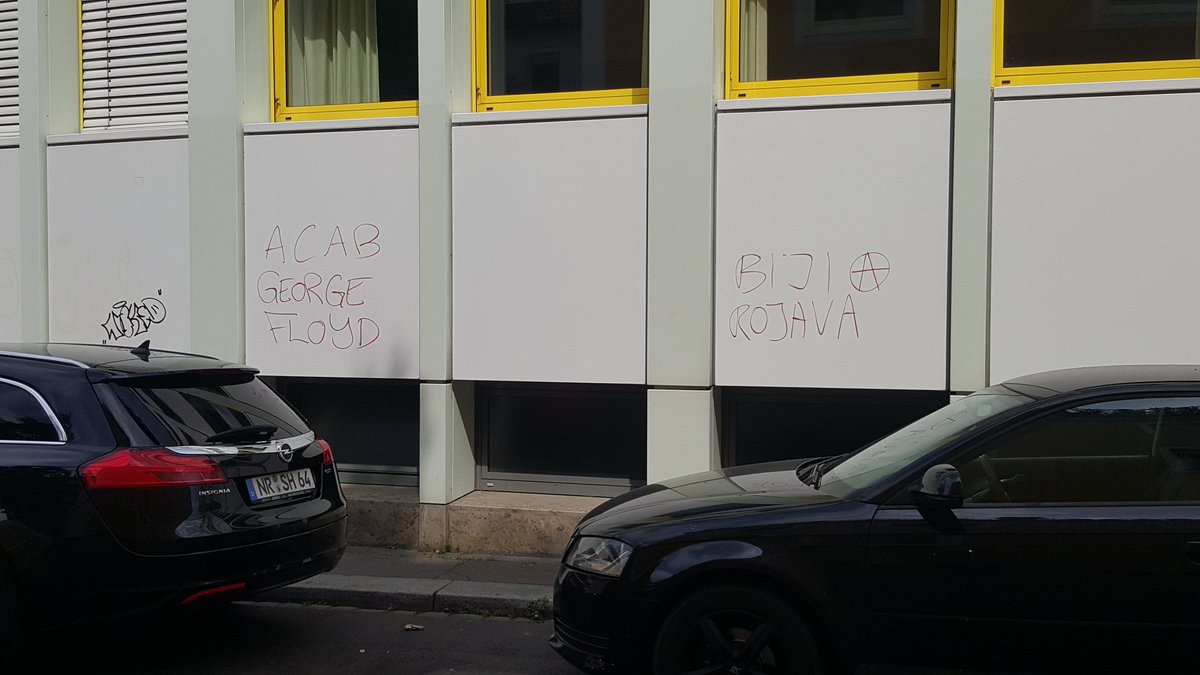 ACAB
GEORGE
FLOYD
BIJI Ⓐ
ROJAVA
INSIGNIA
NR SH 64